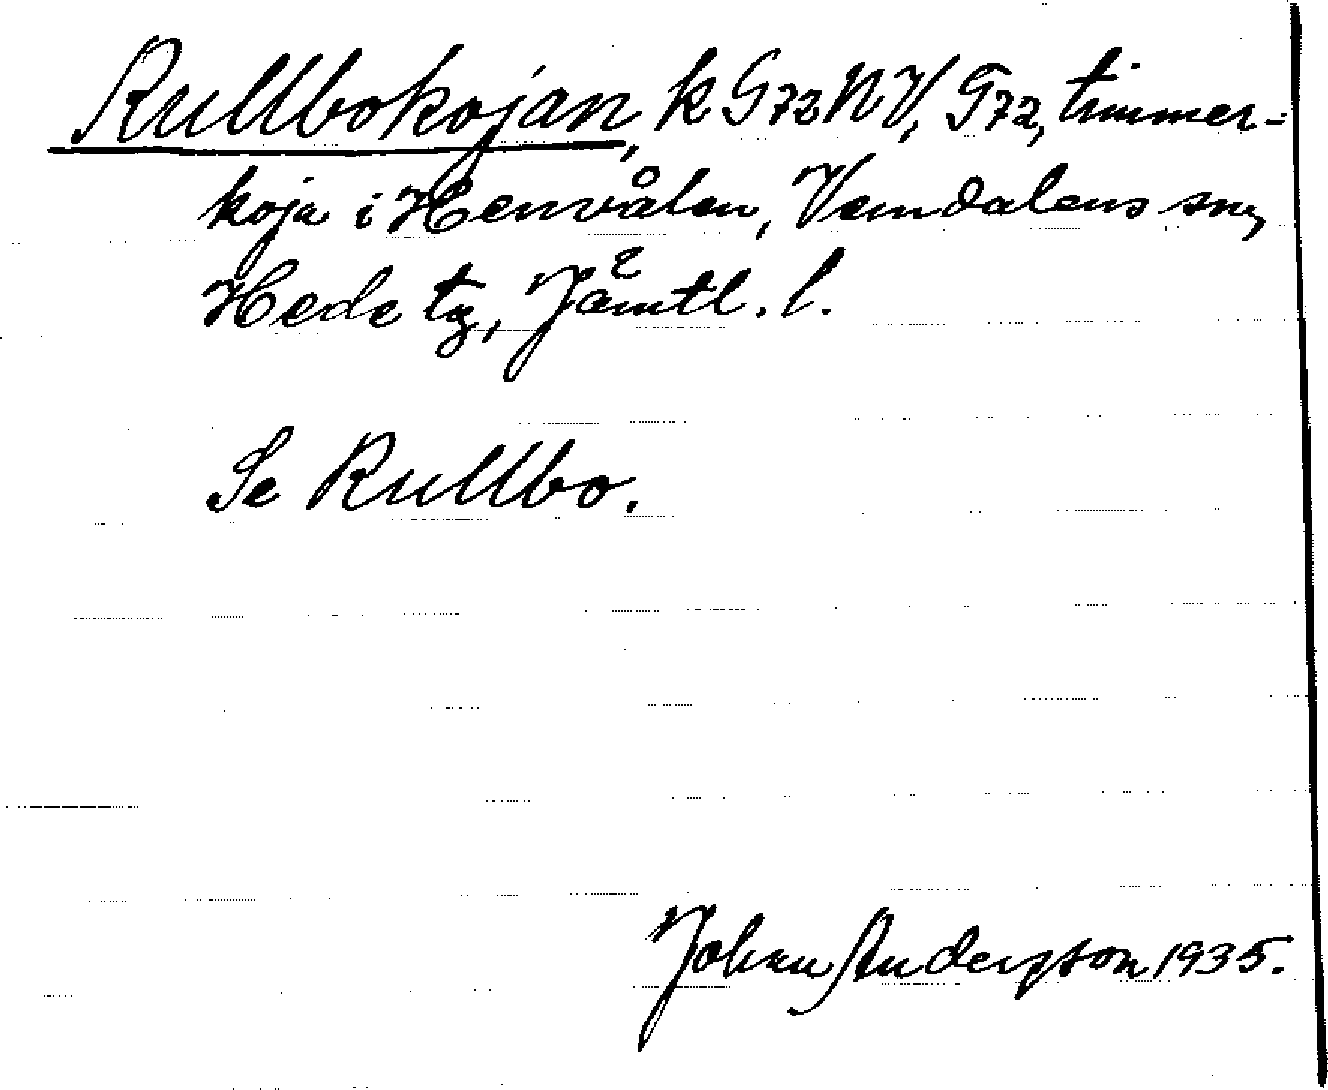 Rullbokojan, k G72NV, G72, timmer-
koja i Henvålen, Vemdalens sn,
Hede tg, Jämtl. l.
Se Rullbo.
Johan Andersson 1935.